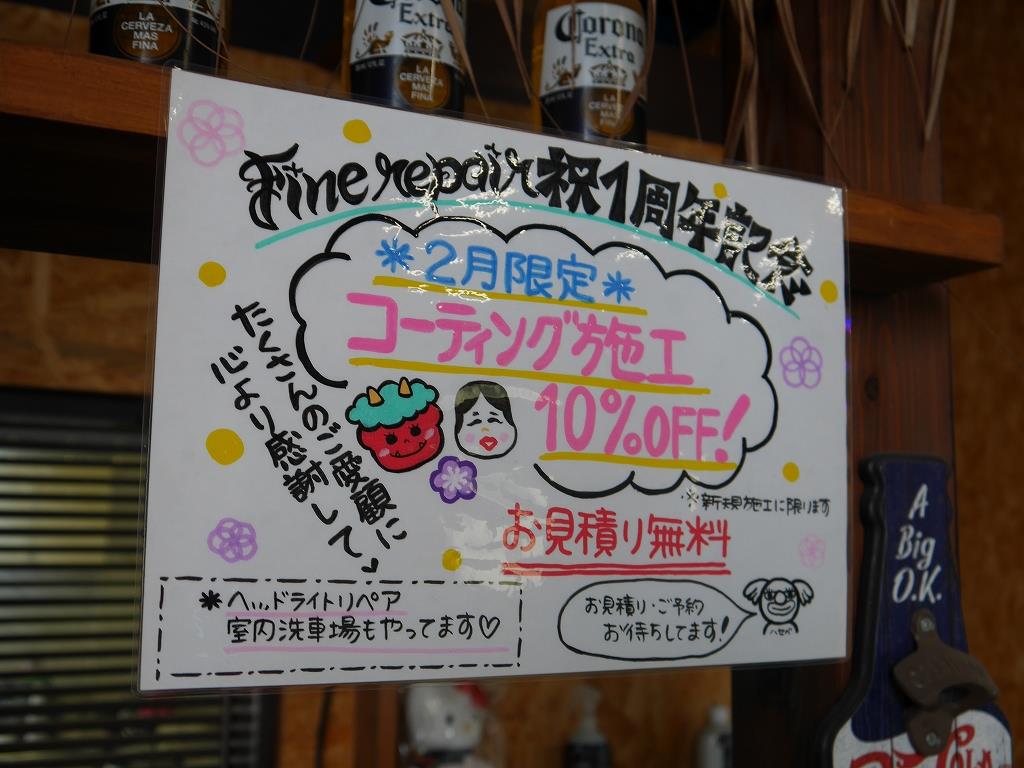 LA
CERVEZA
MAS
FINA
Corona
Extra
LA
CERVEZA
MAS
FINA
Corona
Extra
LA
CERVEZA
MAS
FINA
Fine repair祝1周年記念
＊2月限定＊
コーティング施工
10%OFF!
たくさんのご愛顧に
心より感謝して♥
※新規施工に限ります
お見積り無料
＊ヘッドライトリペア
室内洗車場もやってます♡
お見積り・ご予約
お待ちしてます!
ハセベ
A
Big
O.K.